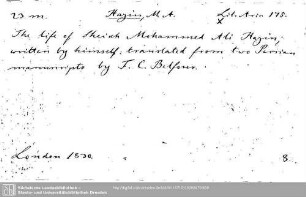 23 m. Hazin, M. A. Lit. Asia 178.
The life of Sheich Mohammed Ali Hazin,
written by himself, translated from two Persian
manuscripts by F. C. Belfour.
London 1830. 8.
Sächsische Landesbibliothek -
Staats- und Universitätsbibliothek Dresden